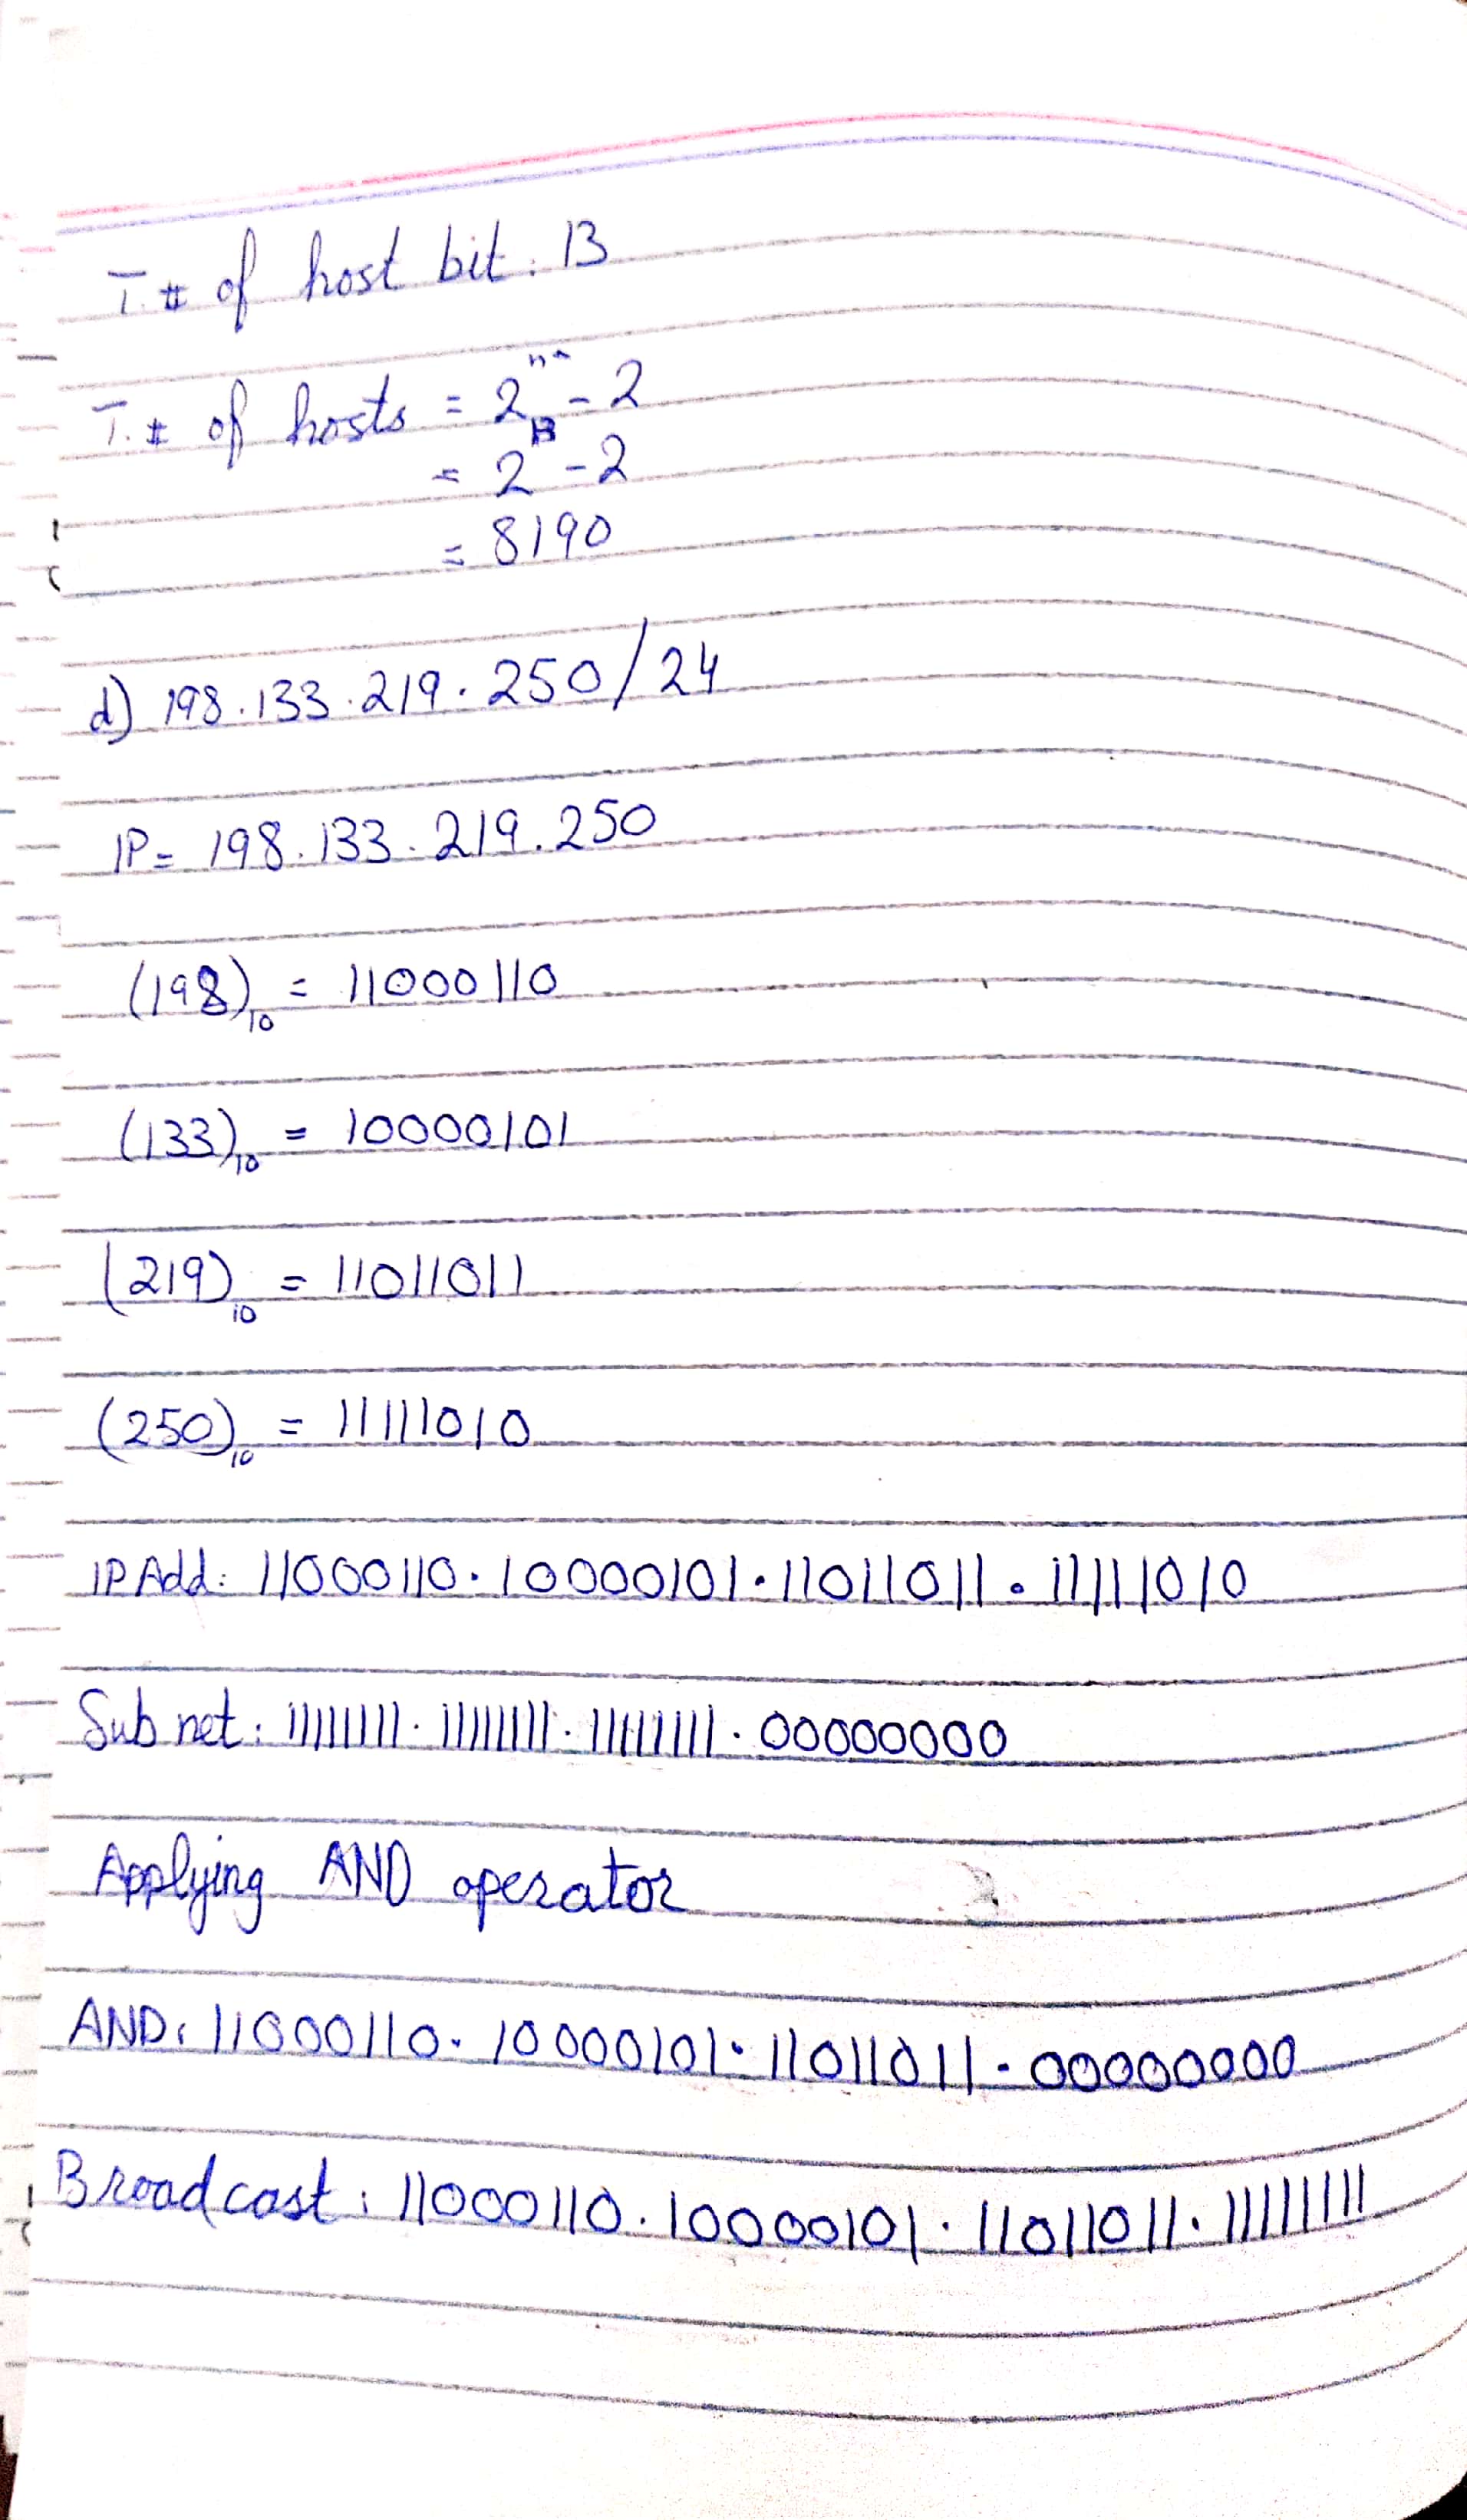 T.# of host bit: 13
T.# of hosts = 2ⁿ - 2
= 2¹³ - 2
= 8190
d) 198.133.219.250/24
IP = 198.133.219.250
(198)₁₀ = 11000110
(133)₁₀ = 10000101
(219)₁₀ = 11011011
(250)₁₀ = 11111010
IP Add: 11000110.10000101.11011011.11111010
Subnet: 11111111.11111111.11111111.00000000
Applying AND operator
AND: 11000110.10000101.11011011.00000000
Broadcast: 11000110.10000101.11011011.11111111